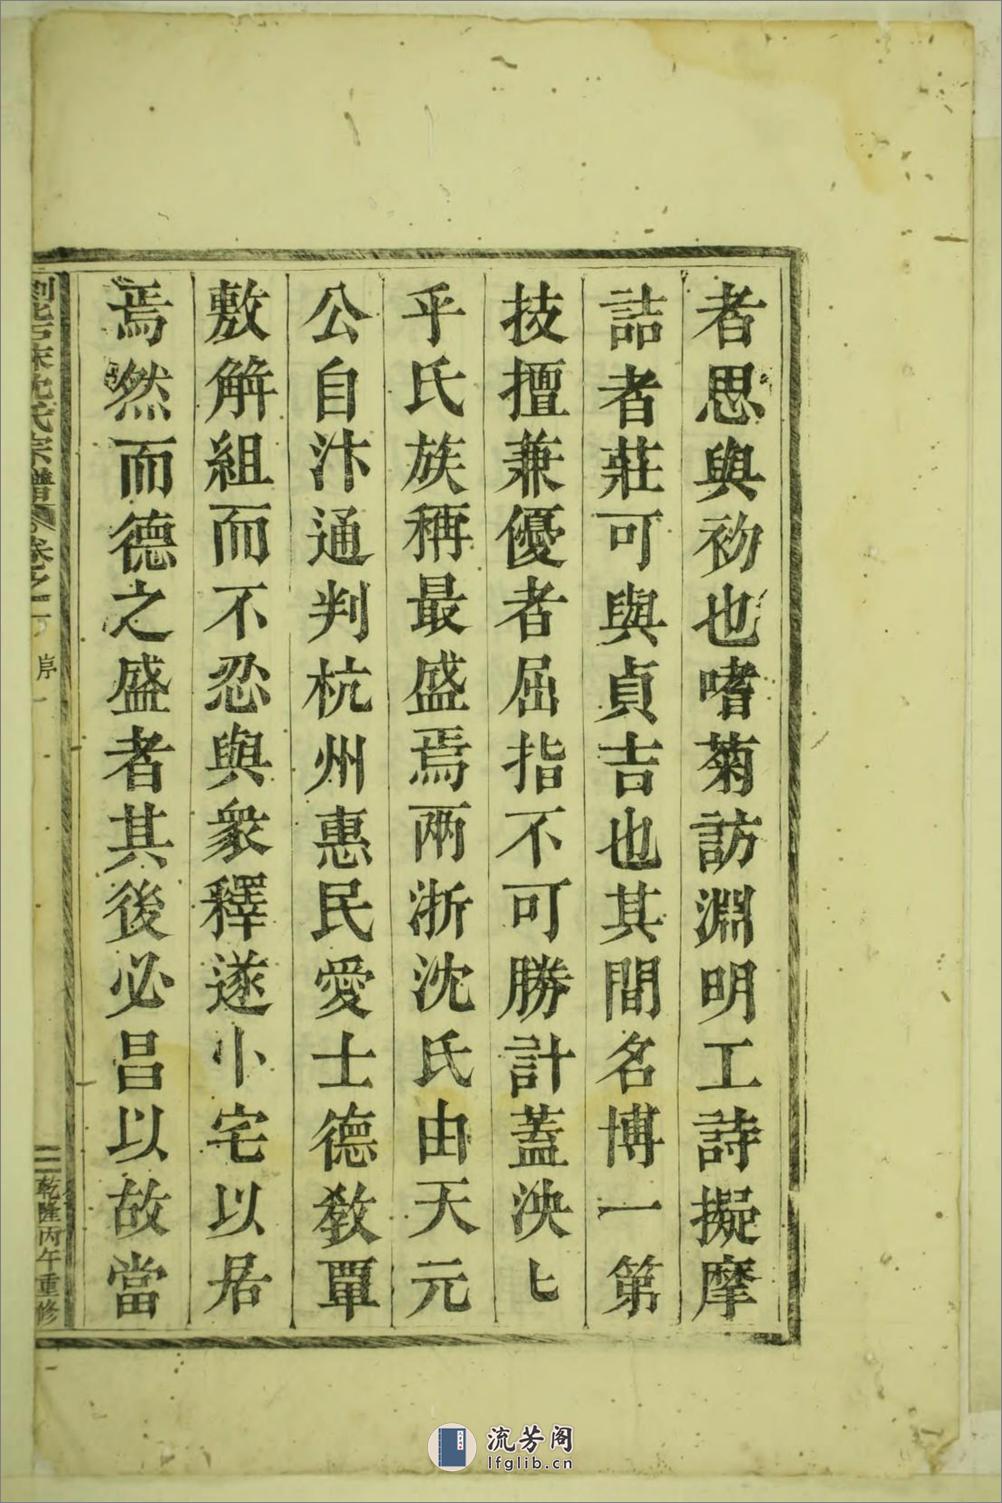 者思與礽也嗜菊訪淵明工詩擬摩
詰者莊可與貞吉也其間名博一第
技擅兼優者屈指不可勝計蓋泱匕
乎氏族稱最盛焉兩浙沈氏由天元
公自汴通判杭州惠民愛士德敎覃
敷解組而不忍與衆釋遂小宅以居
焉然而德之盛者其後必昌以故當
沈氏宗譜
卷之一
序
一
乾隆丙午重修
流芳阁
lfglib.cn